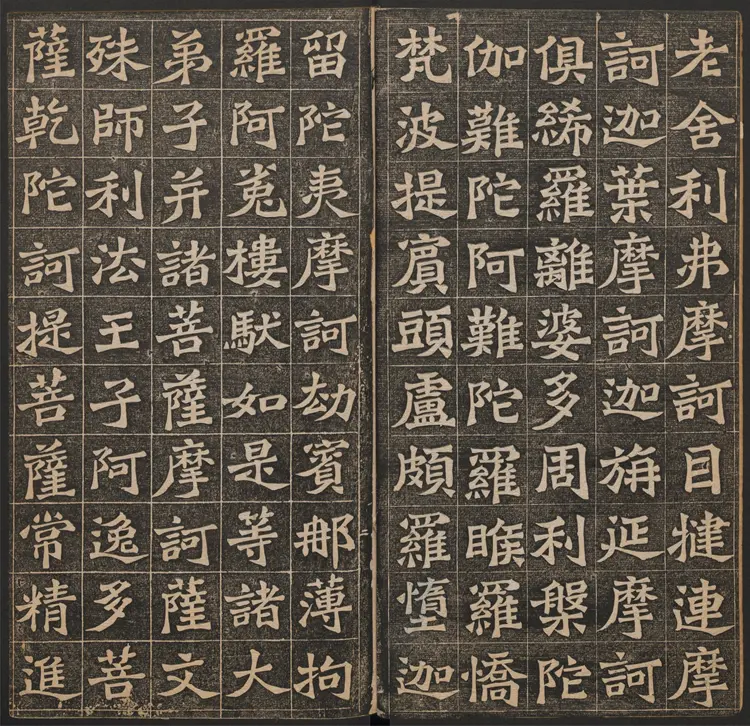 老舍利弗摩訶目揵連摩
訶迦葉摩訶迦旃延摩訶
俱絺羅離婆多周利槃陀
伽難陀阿難陀羅睺羅憍
梵波提賓頭盧頗羅墮迦
留陀夷摩訶劫賓那薄拘
羅阿菟樓馱如是等諸大
弟子并諸菩薩摩訶薩文
殊師利法王子阿逸多菩
薩乾陀訶提菩薩常精進